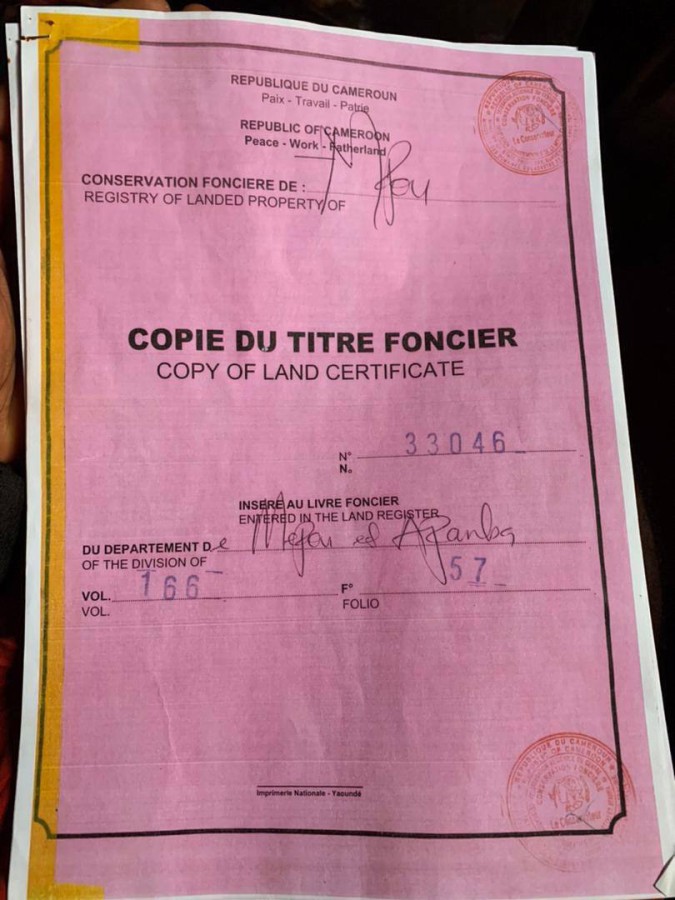 REPUBLIQUE DU CAMEROUN
Paix - Travail - Patrie
REPUBLIC OF CAMEROON
Peace - Work - Fatherland
CONSERVATION FONCIERE DE : Mfou
REGISTRY OF LANDED PROPERTY OF
COPIE DU TITRE FONCIER
COPY OF LAND CERTIFICATE
N° 33046
N.
INSERE AU LIVRE FONCIER
ENTERED IN THE LAND REGISTER
DU DEPARTEMENT De Mefou et Afamba
OF THE DIVISION OF
VOL. 166 F° 57
VOL. FOLIO
Imprimerie Nationale - Yaoundé
REPUBLIQUE DU CAMEROUN
CONSERVATION FONCIERE
Le Conservateur